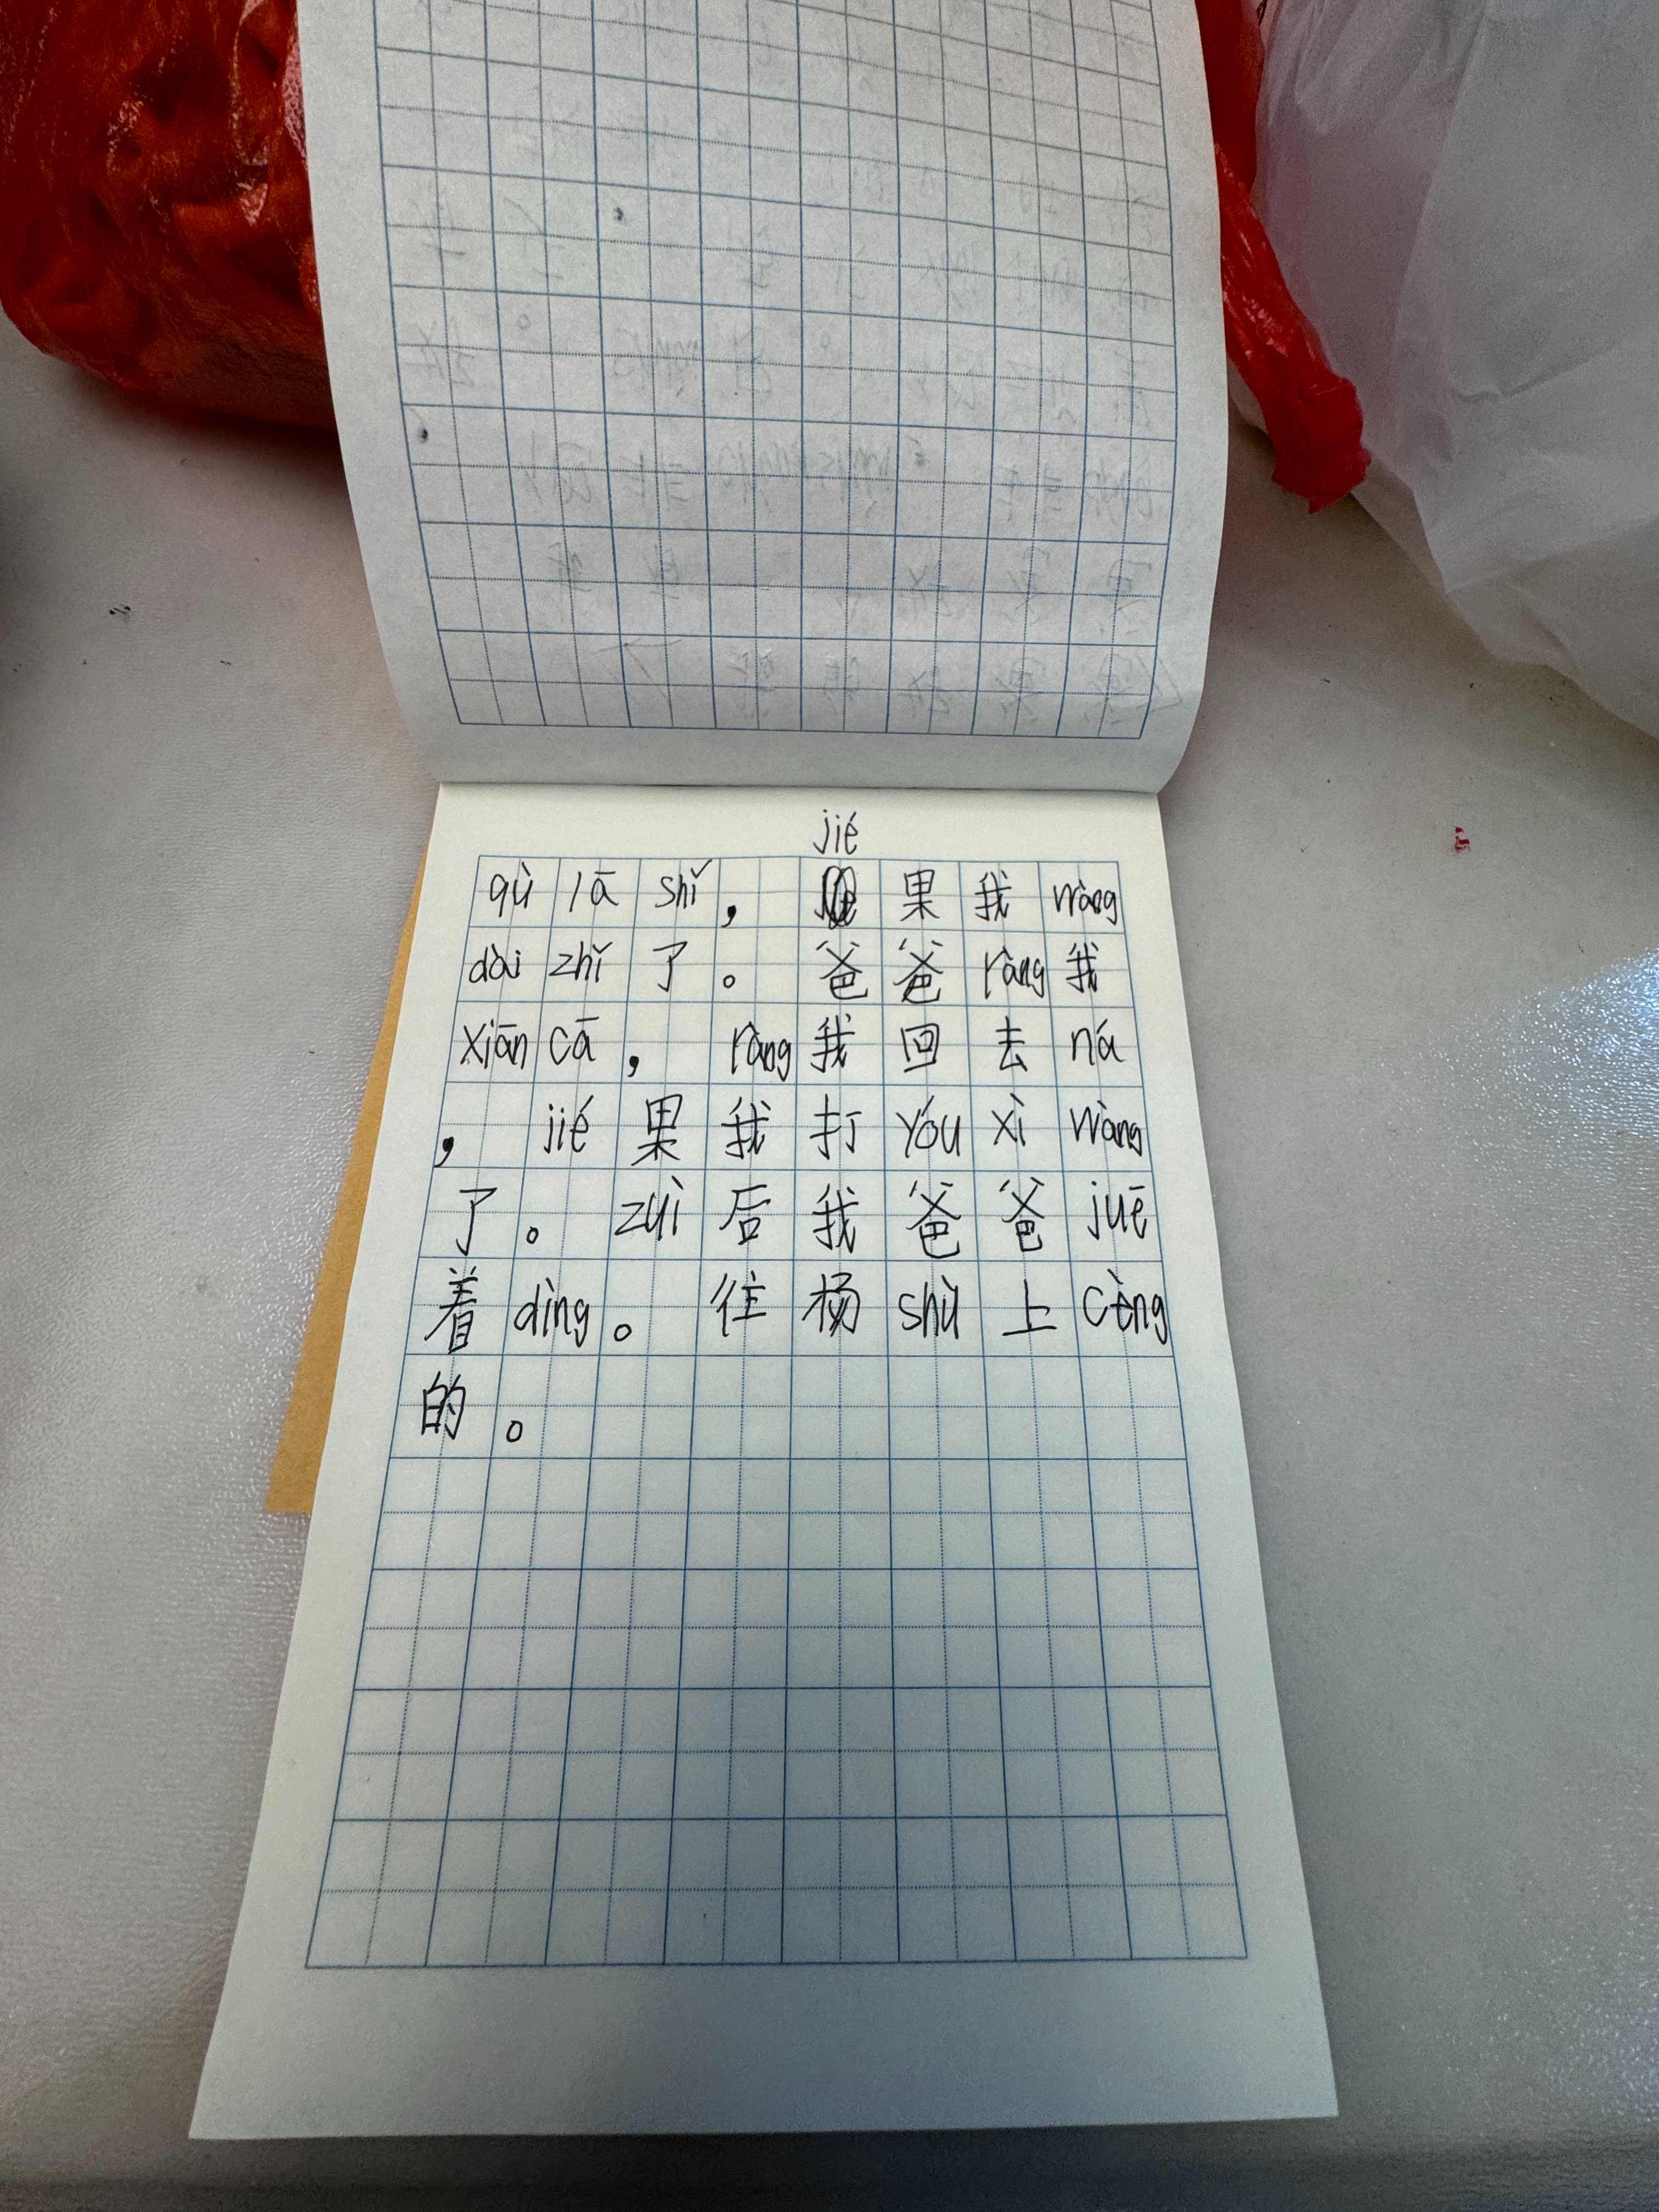 jié
qù lā shǐ， 果我wàng
dài zhǐ了。爸爸ràng我
xiān cā，ràng我回去ná
，jié果我打yóu xì wàng
了。zuì后我爸爸juē
着dìng。往杨shù上cèng
的。